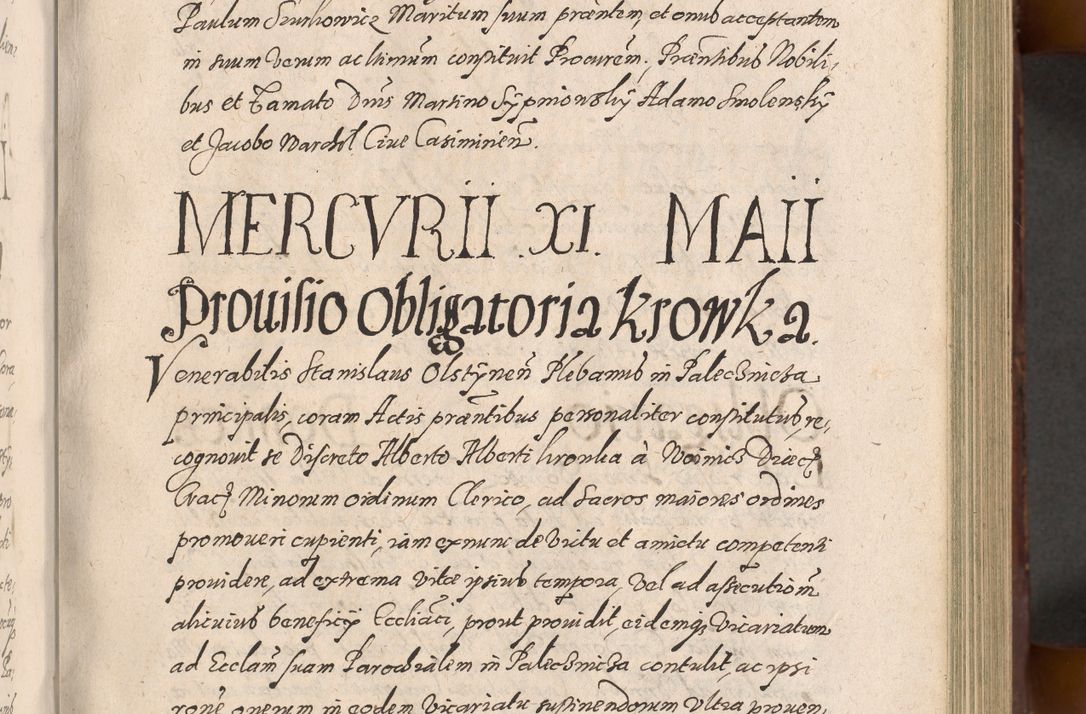 Paulum Szurkowicz Maritum suum præntem et onus acceptantem
in suum verum ac ltimum constituit Procurem. Præntibus Nobili,
bus et Famato Dnis Martino Sypniowsky Adamo Smolensky
et Jacobo Marchl Cive Casimirien.
MERCVRII XI. MAII
Provisio Obligatoria Krowka.
Venerabilis Stanislaus Olstynen Plebanus in Palecznicza
principalis, coram Actis præntibus personaliter constitutus, re,
cognovit se Discreto Alberto Alberti kronka à Woinicz Diæc
Crac Minorum ordinum Clerico, ad sacros maiores ordines
promoveri cupienti, iam ex nunc de victu et amictu competenti
providere, ad extrema vitæ ipsius tempora, vel ad assecutiom
alicuius beneficy Eccliaci, prout providit, eidemq Vicariatum
ad Ecclam suam Parochialem in Palecznicza contulit, ac ipsi
rone onerum in eodem Vicariatu sustinendorum Ultra proven,